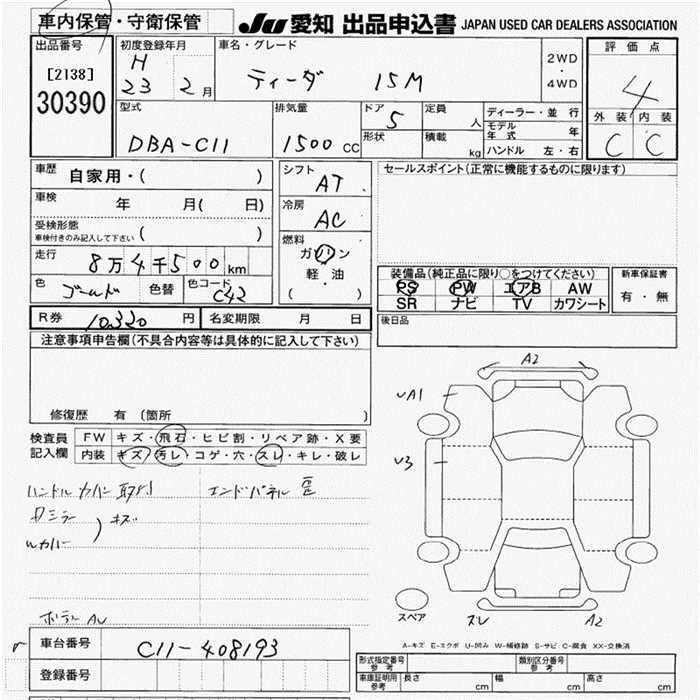 車内保管・守衛保管 JU 愛知 出品申込書 JAPAN USED CAR DEALERS ASSOCIATION
出品番号 初度登録年月 車名・グレード 2WD・4WD 評価点
[2138] H 23 2月 ティーダ 15M 4
30390
型式 排気量 ドア 定員 人 ディーラー・並行 外装 内装
DBA-C11 1500cc 5 モデル年式 年 C C
形状 積載 kg ハンドル 左・右
車歴 自家用・( ) シフト AT セールスポイント(正常に機能するものに限ります)
車検 年 月( 日) 冷房 AC
受検形態 車検付きのみ記入して下さい ( ) 燃料 ガソリン
走行 8万4千500km 軽・油 ( ) 装備品(純正品に限り○をつけてください) 新車保証書
色 ゴールド 色替 色コード C42 PS PW エアB AW 有・無
SR ナビ TV カワシート
R券 10,320円 名変期限 月 日 後日品
注意事項申告欄(不具合内容等は具体的に記入して下さい)
修復歴 有 (箇所 )
A2
UA1
U3
検査員 FW キズ・飛石・ヒビ割・リペア跡・X要
記入欄 内装 キズ・汚レ・コゲ・穴・スレ・キレ・破レ
ハンドルカバー エンドパネル
ミラー キズ
カバー
スペア スレ A2
車台番号 C11-408193
登録番号
A-キズ E-エクボ U-凹み W-補修跡 S-サビ C-腐食 XX-交換済
形式指定番号 参考 類別区分番号 参考
車庫証明用 参考 長さ cm 幅 cm 高さ cm